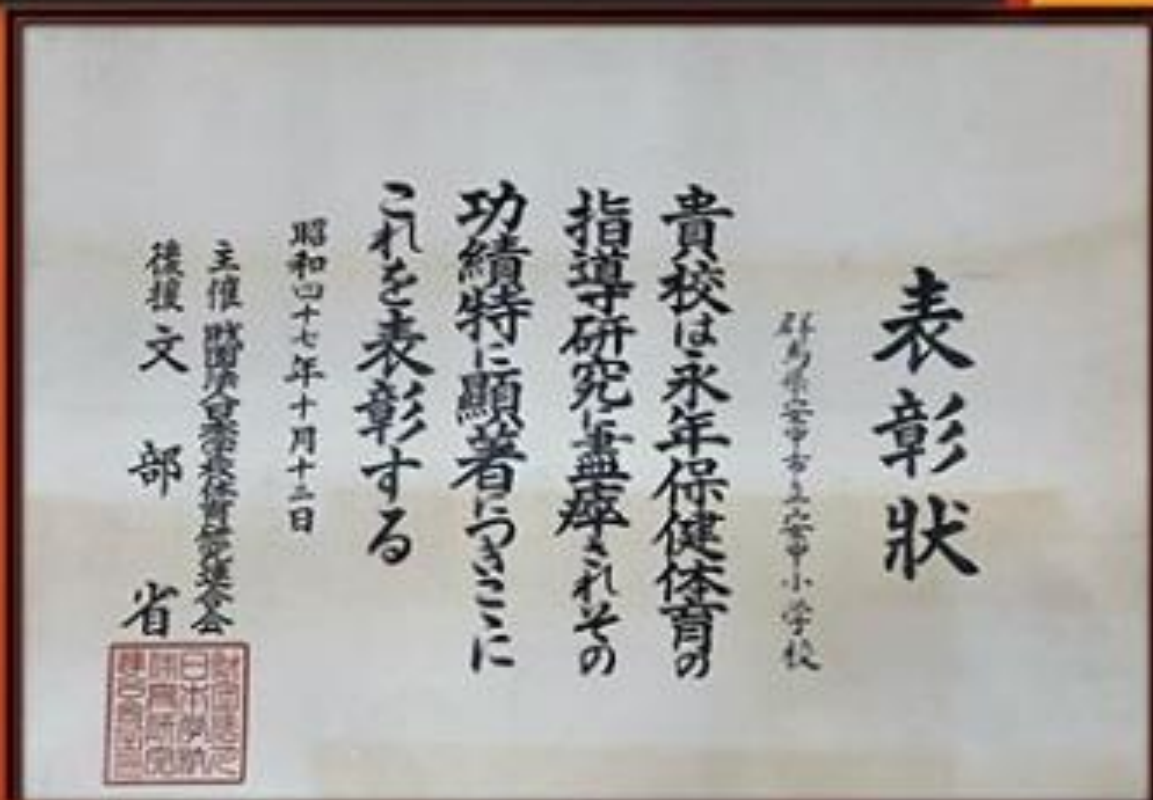 表彰状
群馬県安中市立安中小学校
貴校は永年保健体育の
指導研究に盡瘁されその
功績特に顯著につきここに
これを表彰する
昭和四十七年十月十二日
主催 財団法人日本学校体育研究連合会
後援 文部省